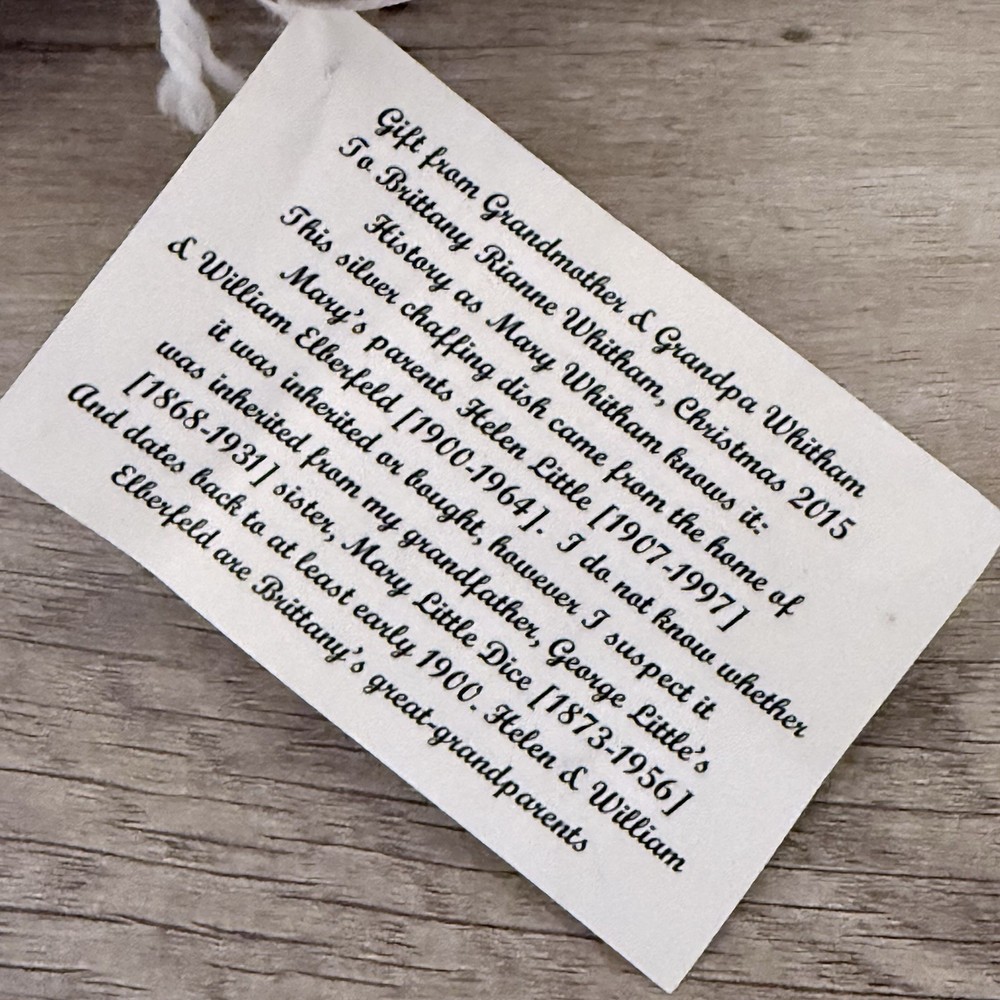 Gift from Grandmother & Grandpa Whitham
To Brittany Rianne Whitham, Christmas 2015
History as Mary Whitham knows it:
This silver chaffing dish came from the home of
Mary's parents Helen Little [1907-1997]
& William Elberfeld [1900-1964]. I do not know whether
it was inherited or bought, however I suspect it
was inherited from my grandfather, George Little's
[1868-1931] sister, Mary Little Dice [1873-1956]
And dates back to at least early 1900. Helen & William
Elberfeld are Brittany's great-grandparents